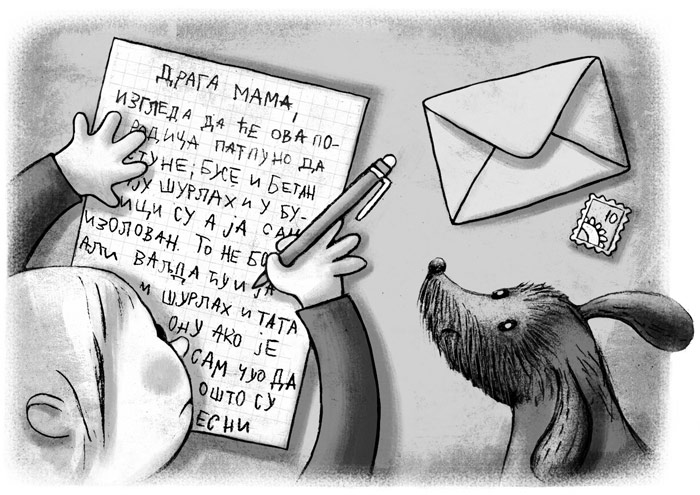 ДРАГА МАМА,
ИЗГЛЕДА ДА ЋЕ ОВА ПО-
РОДИЧА ПАТПУНО ДА
ТУНЕ; БУСЕ И БЕТАН
ЈУ ШУРЛАХ И У БУ-
ИЦИ СУ А ЈА САМ
ИЗОЛОВАН. ТО НЕ
АЛИ ВАЉДА ЋУ И ЈА
М ШУРЛАХ И ТАТА
ОНУ АКО ЈЕ
САМ ЧУО ДА
ОШТО СУ
ЕСНИ
10